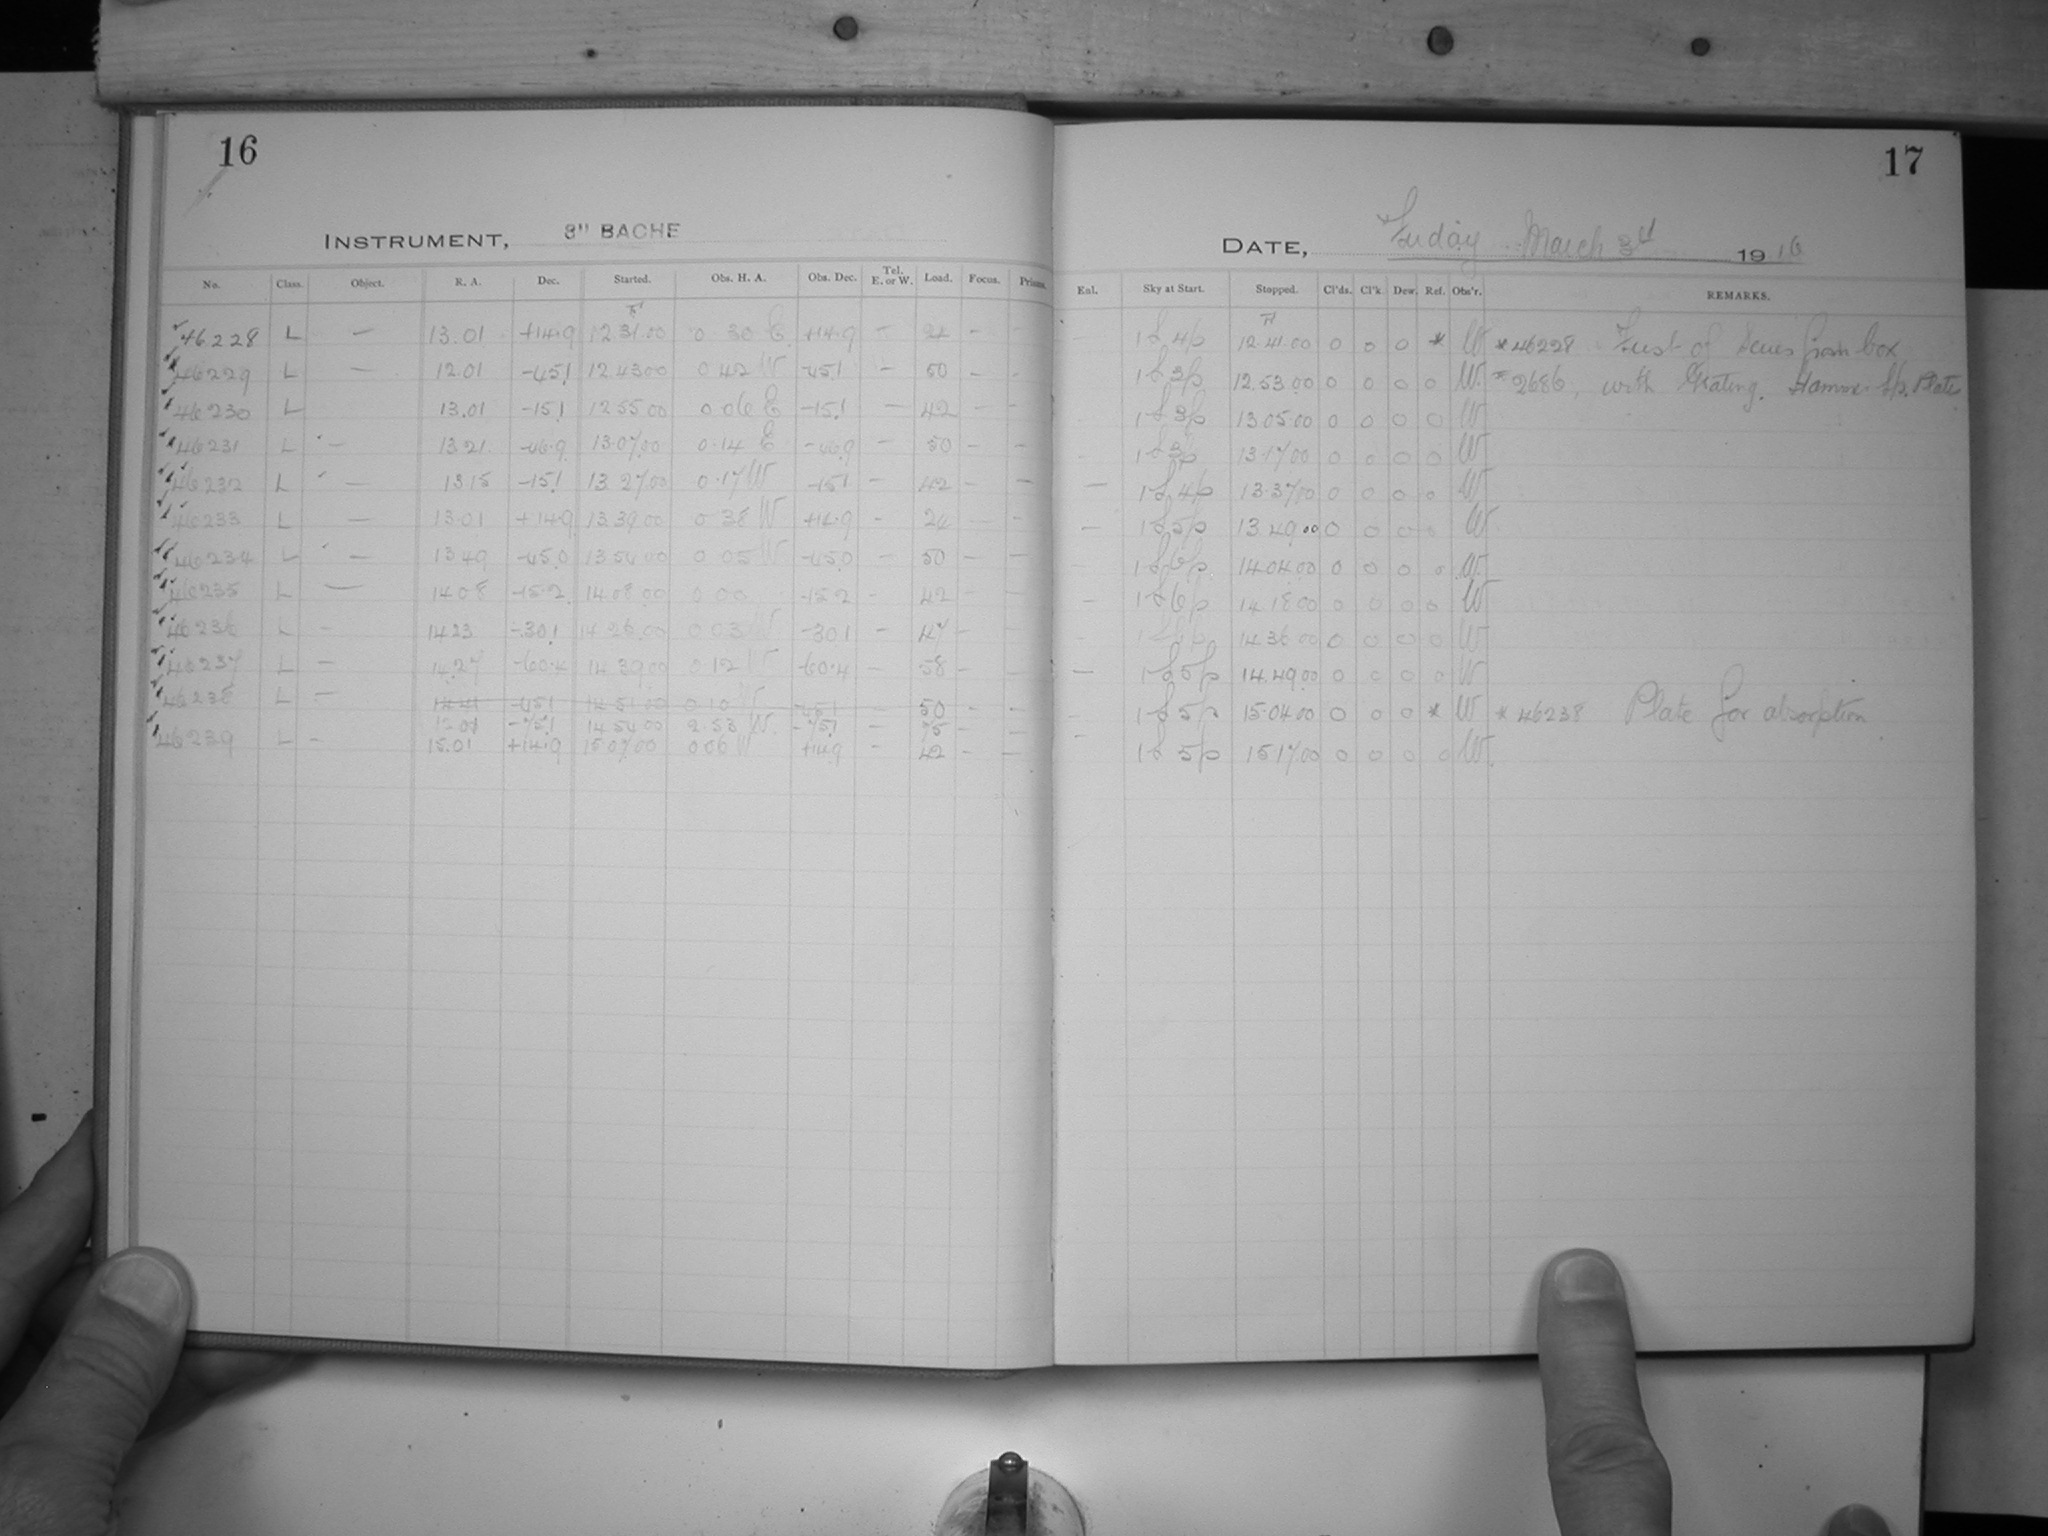 16
INSTRUMENT, 8" BACHE
No. Class. Object. R. A. Dec. Started. Obs. H. A. Obs. Dec. Tel. E. or W. Load. Focus. Prisms.
46228 L — 13.01 +14.9 12 31.00 0 30 E +14.9 — 24 — —
46229 L — 12.01 -45.1 12 43 00 0 42 W -45.1 — 50 — —
46230 L 13.01 -15.1 12 55 00 0 06 E -15.1 — 42 — —
46231 L — 13.21 -46.9 13.07.00 0.14 E -46.9 — 50 — —
46232 L — 13 15 -15.1 13 27.00 0.17 W -15.1 — 42 — —
46233 L — 13.01 +14.9 13.39.00 0 38 W +14.9 — 24 — —
46234 L — 13 49 -45.0 13 54 00 0 05 W -45.0 — 50 — —
46235 L — 14 08 -15.2 14 08 00 0 00 -15.2 — 42 — —
46236 L — 14 23 -30.1 14 26.00 0 03 W -30.1 — 47 — —
46237 L — 14.27 -60.4 14 39.00 0.12 W -60.4 — 58 — —
46238 L — 14 41 -45.1 14 51.00 0.10 W -45.1 50 — —
12.01 -75.1 14 54 00 2.53 W. -75.1 — 75 — —
46239 L — 15.01 +14.9 15.07.00 0 06 W +14.9 — 42 — —
17
DATE, Friday March 3d 1916
Enl. Sky at Start. Stopped. Cl'ds. Cl'k. Dew. Ref. Obs'r. REMARKS.
12.41.00 0 0 0 * W *46228 First of Series from box
12.53.00 0 0 0 0 W. *2686, with Grating. Hammer Sp. Plate
13.05.00 0 0 0 0 W
13.17.00 0 0 0 0 W
— 13.37.00 0 0 0 0 W
— 13.49.00 0 0 0 0 W
14.04.00 0 0 0 0 W
— 14.18.00 0 0 0 0 W
14.36.00 0 0 0 0 W
— 14.49.00 0 0 0 0 W
15.04.00 0 0 0 * W *46238 Plate for absorption
15 17.00 0 0 0 0 W.